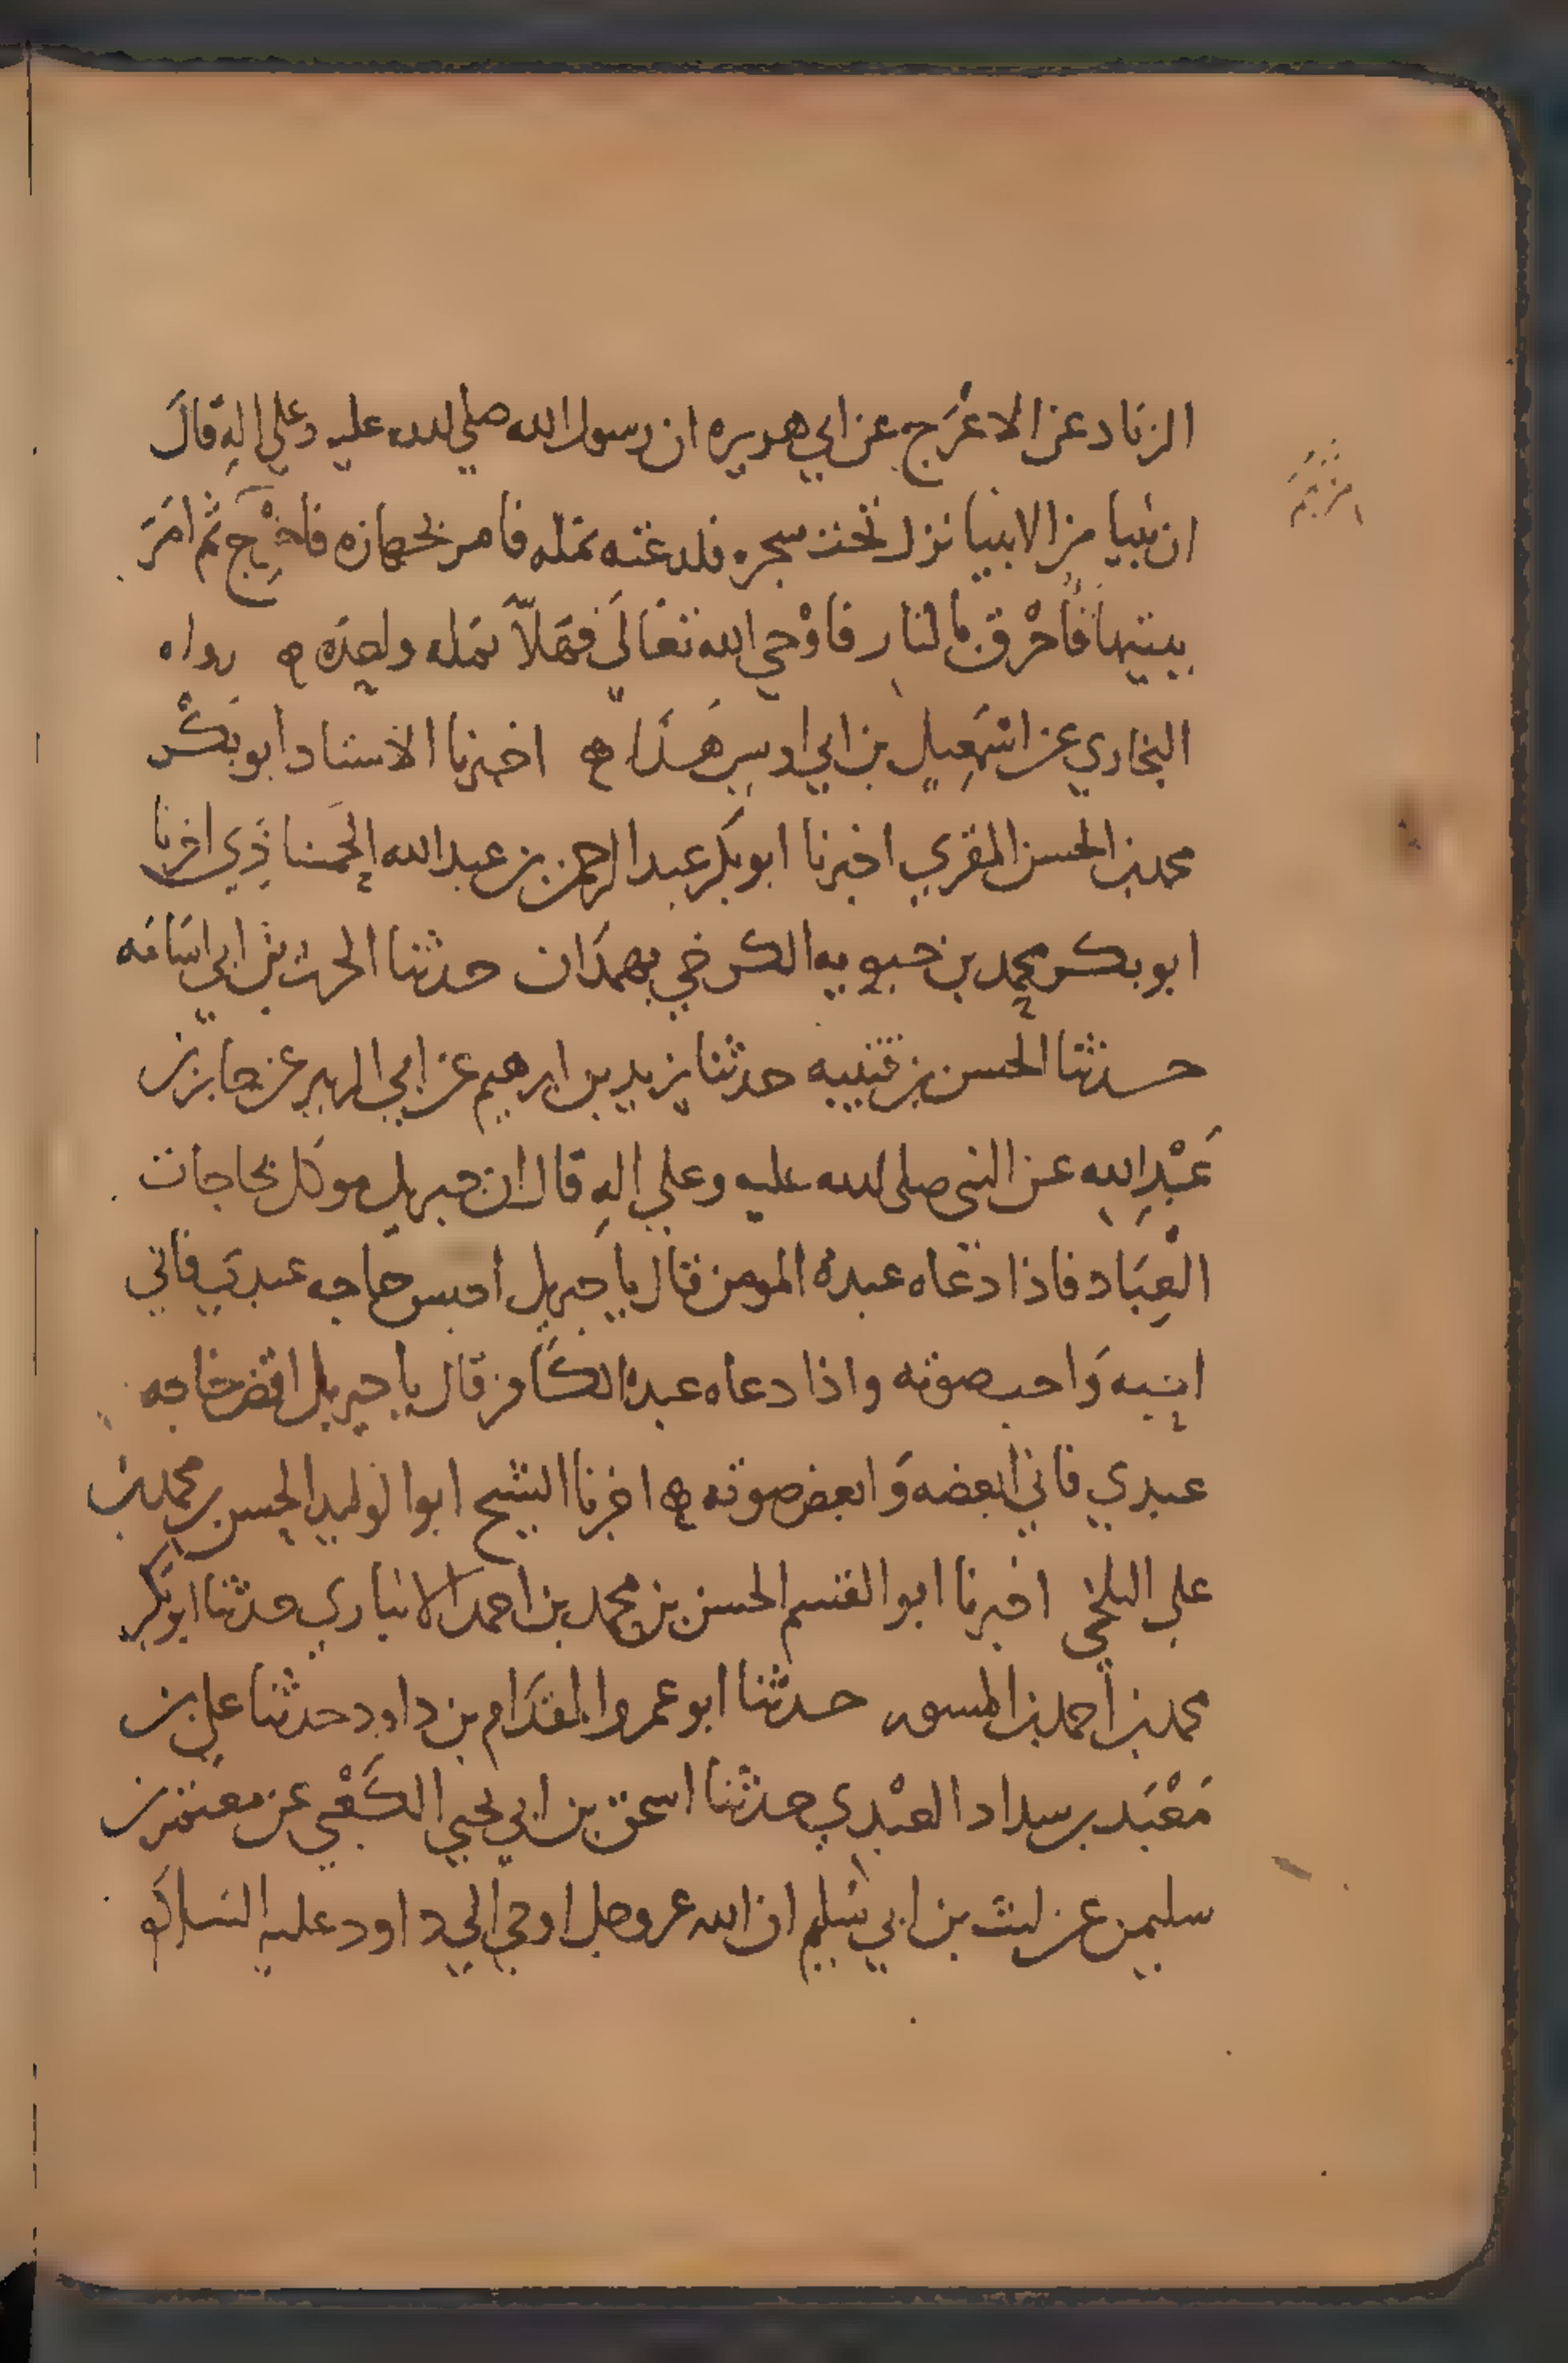 الزناد عن الاعرج عن ابي هريره ان رسول الله صلى الله عليه وعلى اله قال
ان نبيا من الانبيا نزل تحت سجره فلدغته نمله فامر بجهازه فاخرج ثم امر
ببيتها فاحرق بالنار فاوحي الله تعالي فهلا نمله واحده ه رواه
البخاري عن اسمعيل بن ابي اويس هذا ه اخبرنا الاستاد ابو بكر
محمد بن الحسن المقري اخبرنا ابو بكر عبد الرحمن بن عبد الله اخبرنا
ابو بكر محمد بن حبويه الكرخي بهمدان حدثنا الحرث بن ابي اسامه
حدثنا الحسن بن قتيبه حدثنا يزيد بن ابرهيم عن ابي الزبير عن جابر بن
عبد الله عن النبي صلى الله عليه وعلي اله قال ان جبريل موكل بحاجات
العباد فاذا دعاه عبده المومن قال يا جبريل احبس حاجه عبدي فاني
احبه واحب صوته واذا دعاه عبده الكافر قال يا جبريل اقض حاجه
عبدي فاني ابغضه وابغض صوته ه اخبرنا الشيخ ابو الوليد الحسن بن محمد بن
علي البلخي اخبرنا ابو القسم الحسن بن محمد بن احمد الانباري حدثنا ابو بكر
محمد بن احمد بن المسور حدثنا ابو عمرو المقدام بن داود حدثنا علي بن
معبد بن سداد العبدي حدثنا اسحق بن ابي يحيي الكعبي عن معتمر بن
سليمن عن ليث بن ابي سليم ان الله عز وجل اوحي الي داود عليه السلام